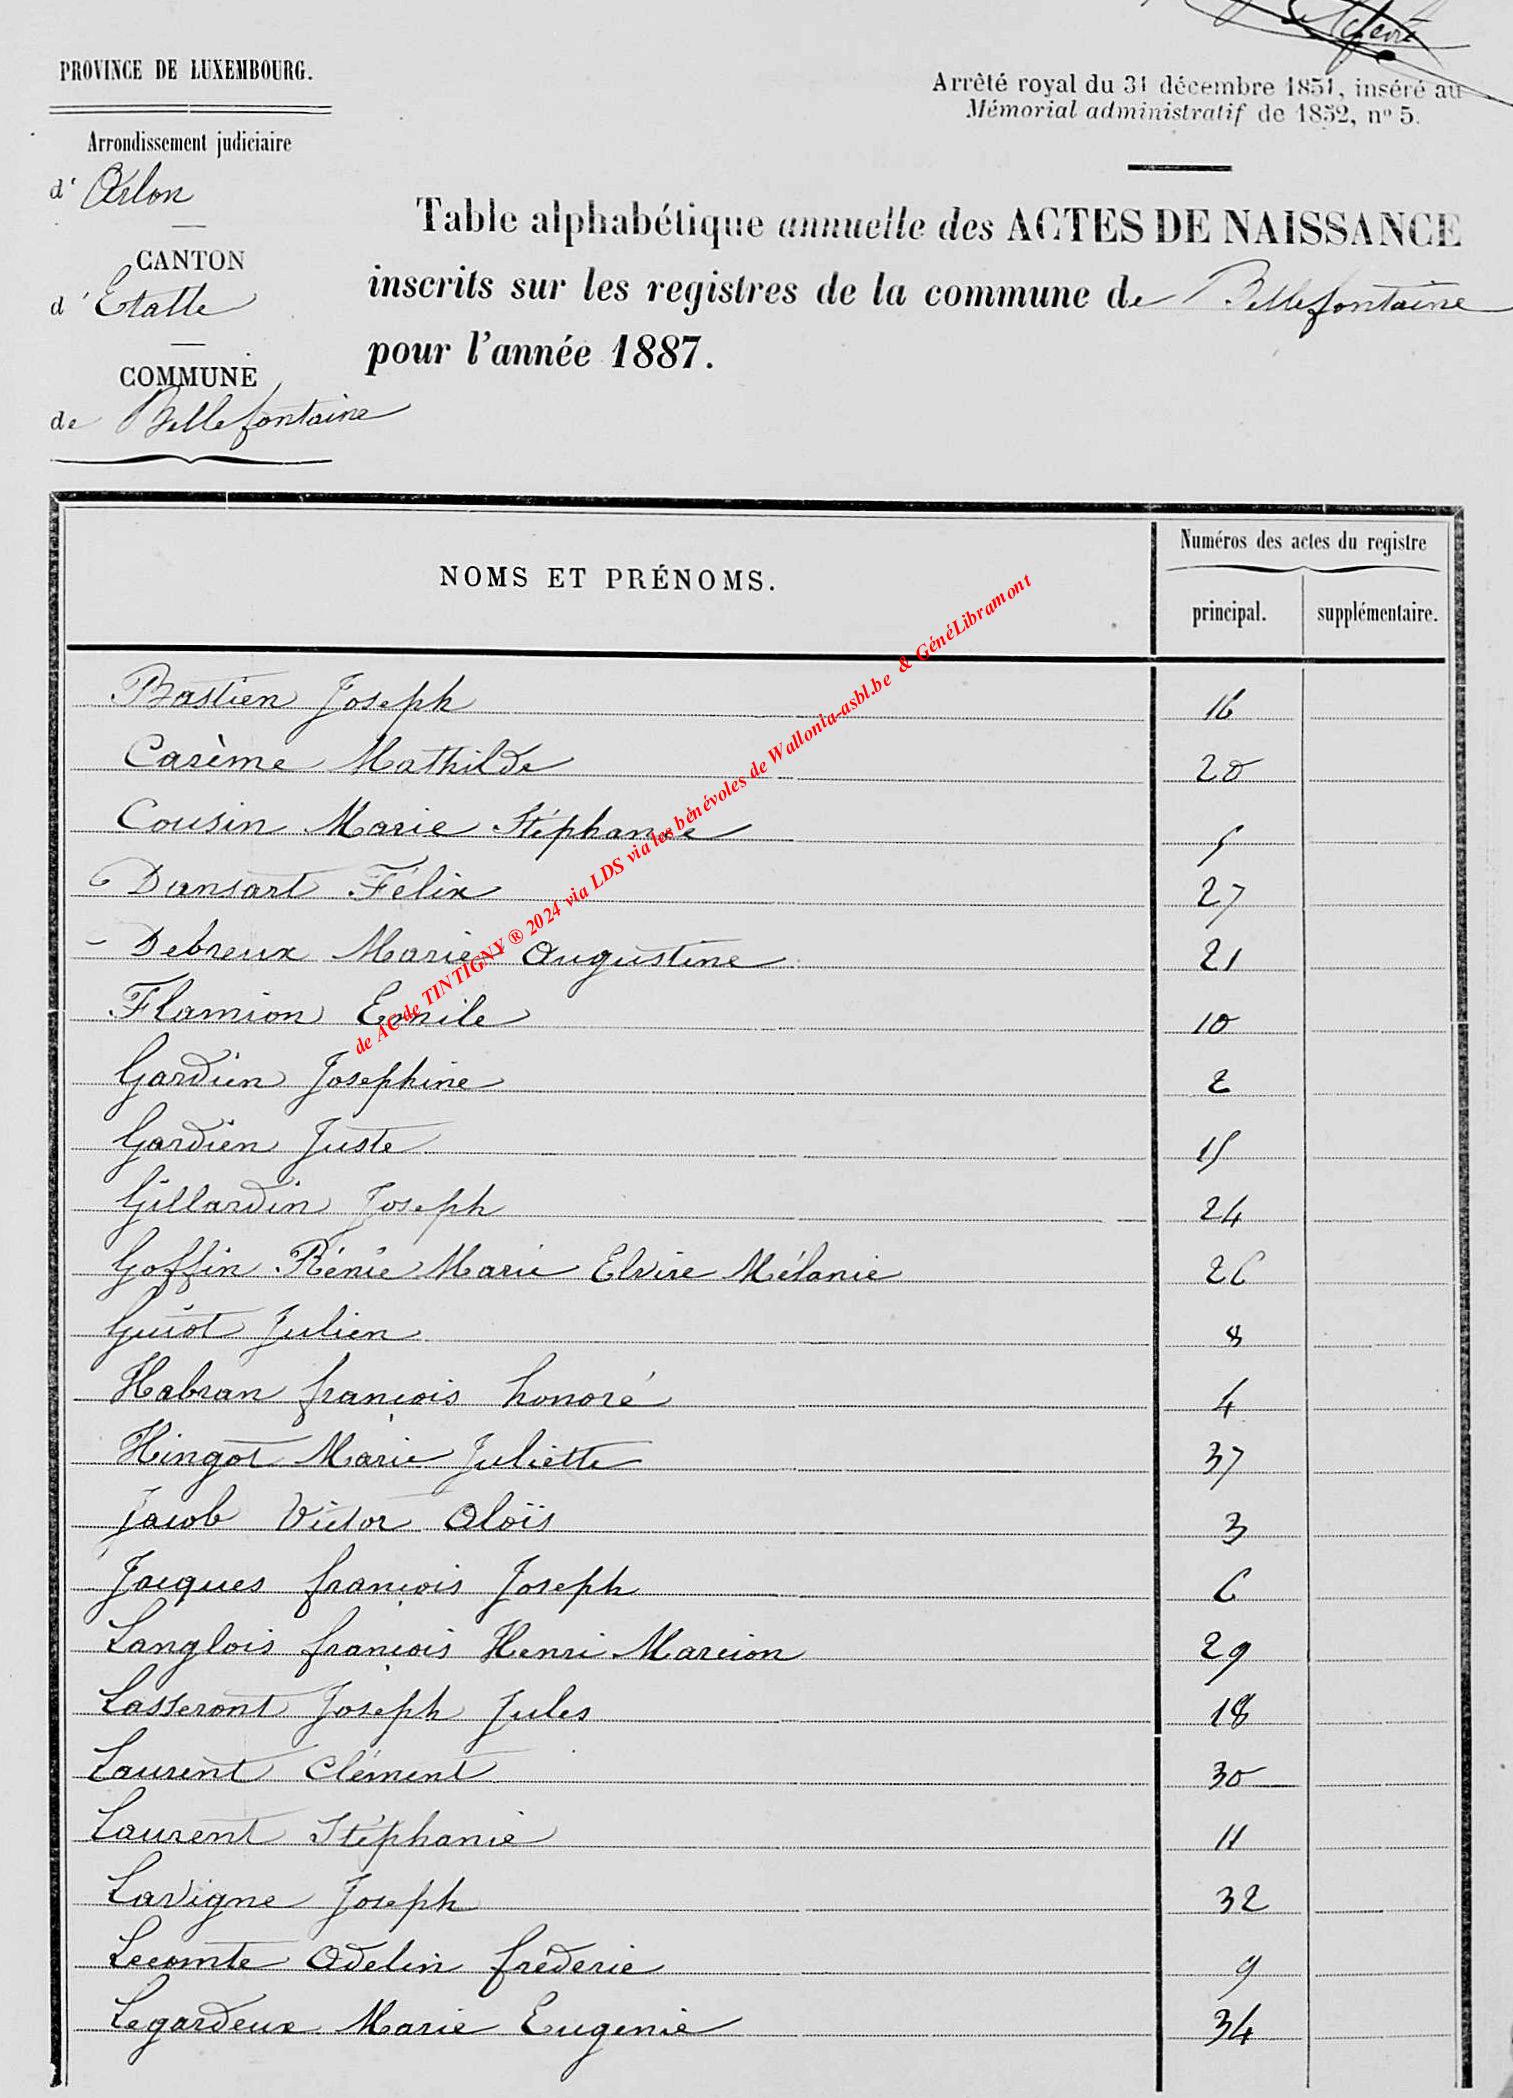 PROVINCE DE LUXEMBOURG.
Arrondissement judiciaire
d' Arlon
CANTON
d' Etalle
COMMUNE
de Bellefontaine
Arrêté royal du 31 décembre 1851, inséré au
Mémorial administratif de 1852, nº 5.
Table alphabétique annuelle des ACTES DE NAISSANCE
inscrits sur les registres de la commune de Bellefontaine
pour l'année 1887.
NOMS ET PRÉNOMS.
Numéros des actes du registre
principal. supplémentaire.
Bastien Joseph 16
Carème Mathilde 20
Cousin Marie Stéphanie 5
Dansart Félix 27
Debreux Marie Augustine 21
Flamion Emile 10
Gardien Josephine 2
Gardien Juste 15
Gillardin Joseph 24
Goffin Rénie Marie Elvire Mélanie 26
Guiot Julien 8
Habran françois honoré 4
Hingot Marie Juliette 37
Jacob Victor Aloïs 3
Jacques françois Joseph 6
Langlois françois Henri Marcion 29
Lasseront Joseph Jules 18
Laurent Clément 30
Laurent Stéphanie 11
Lavigne Joseph 32
Lecomte Odelin fréderic 9
Legardeux Marie Eugenie 34
de AC de TINTIGNY ® 2024 via LDS via les bénévoles de Wallonia-asbl.be & GénéLibramont